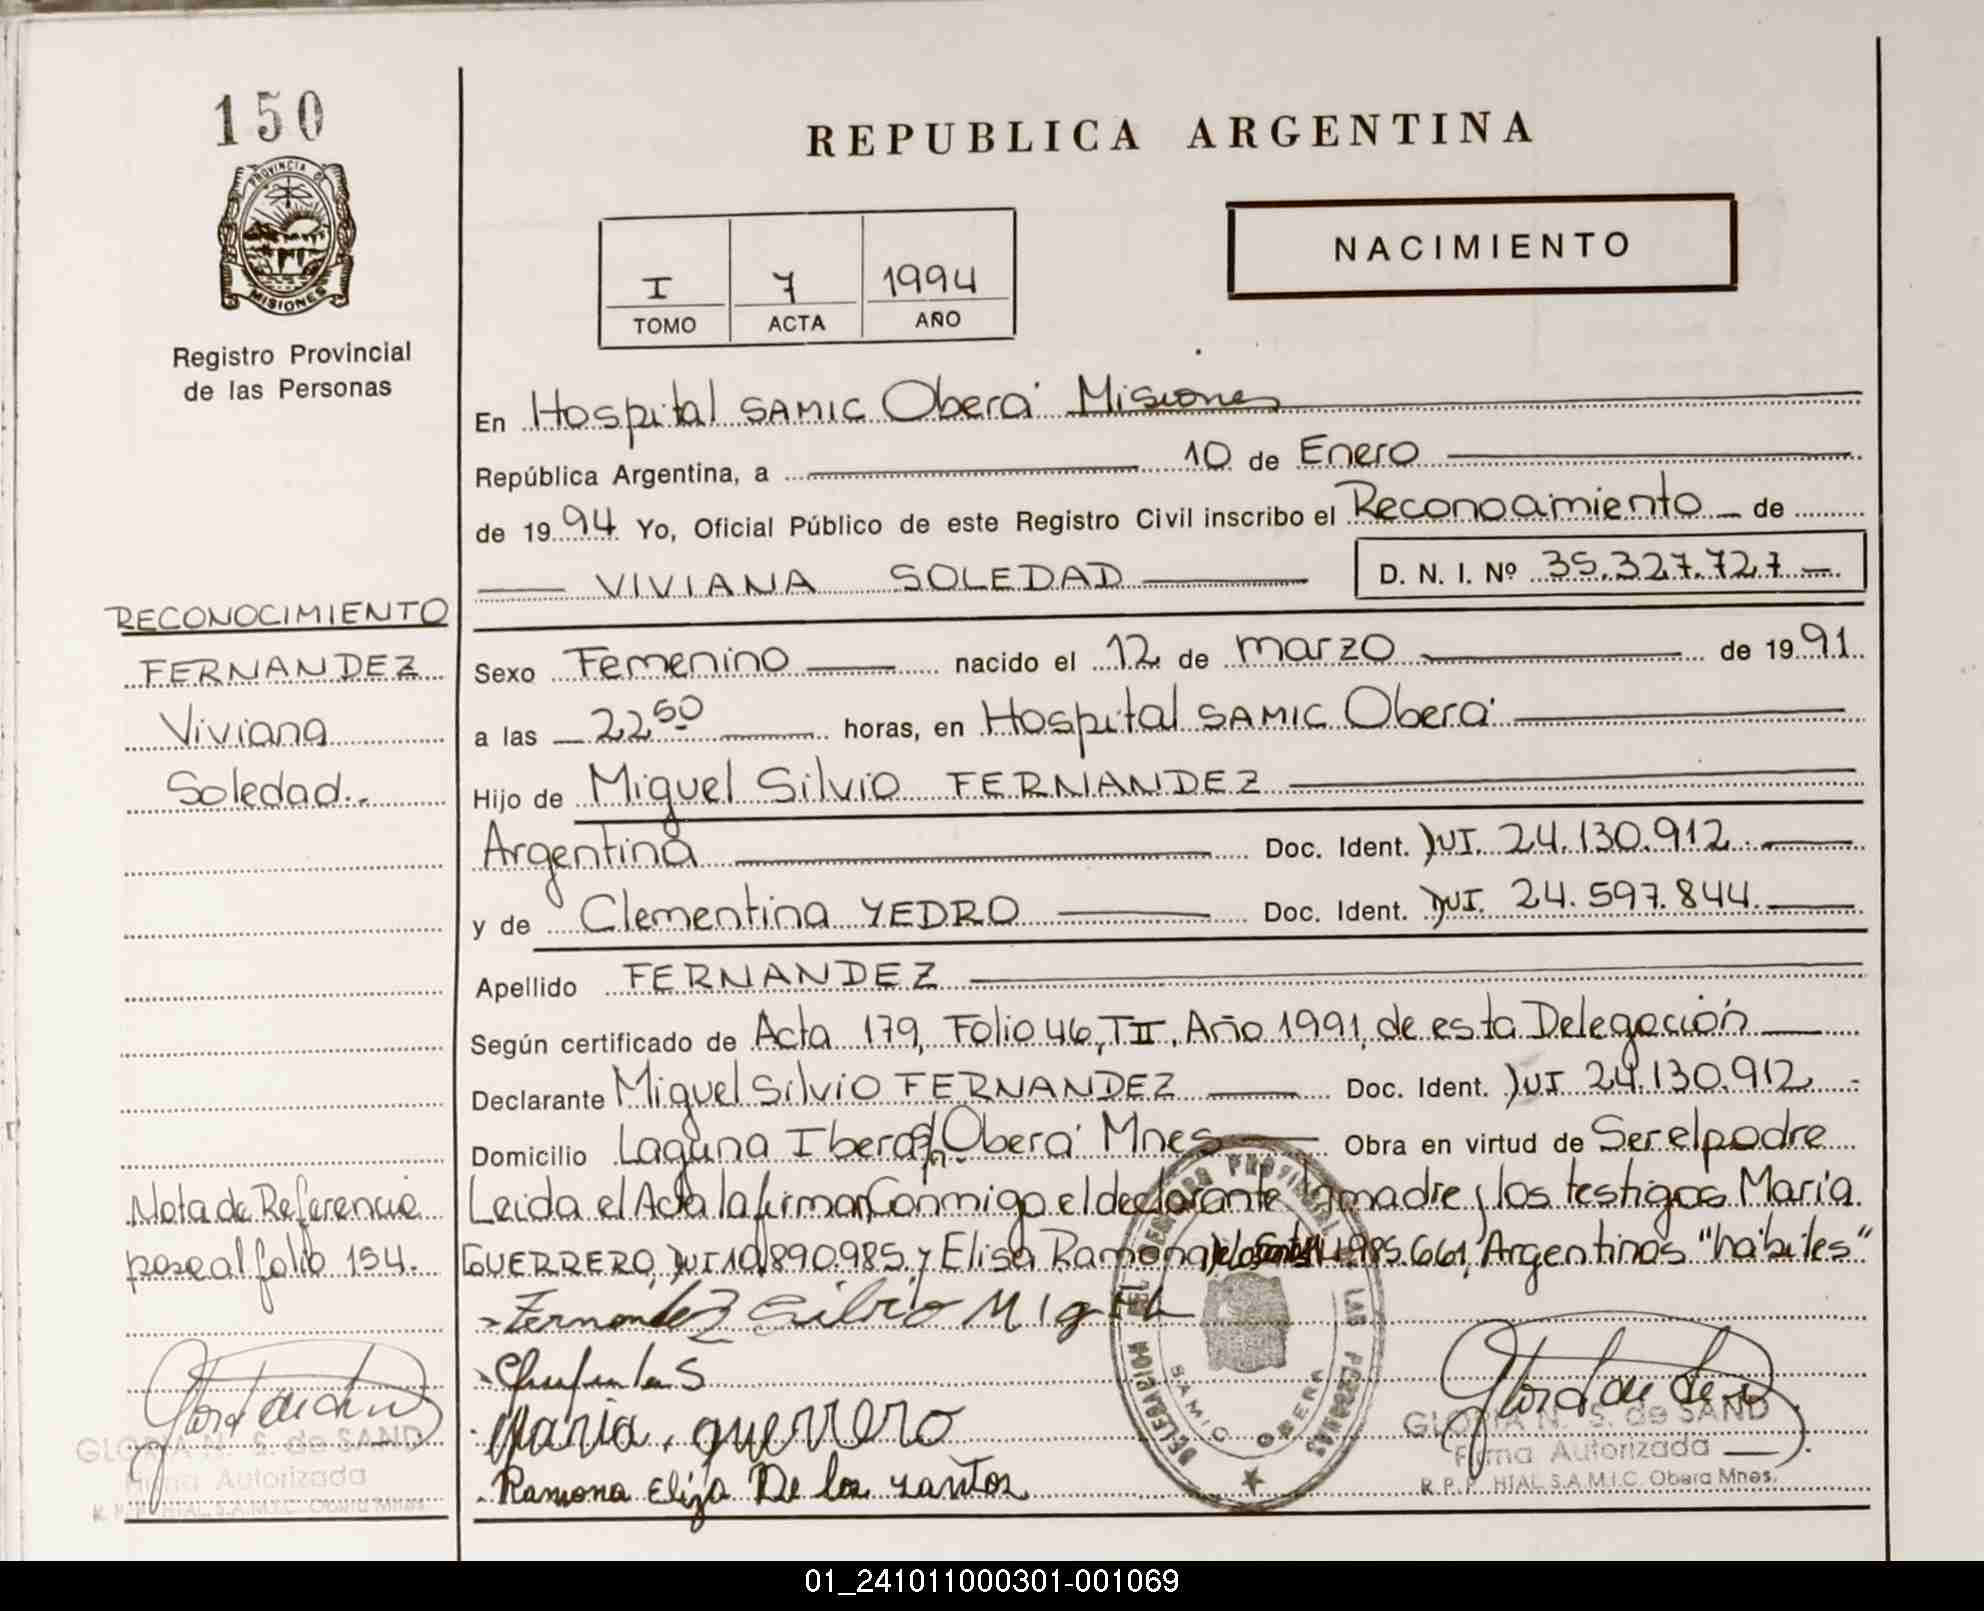 150
PROVINCIA DE
MISIONES
Registro Provincial
de las Personas
REPUBLICA ARGENTINA
NACIMIENTO
I 7 1994
TOMO ACTA AÑO
En Hospital SAMIC Oberá Misiones
República Argentina, a 10 de Enero
de 1994 Yo, Oficial Público de este Registro Civil inscribo el Reconocimiento de
VIVIANA SOLEDAD D. N. I. Nº 35.327.727
RECONOCIMIENTO
FERNANDEZ
Viviana
Soledad.
Sexo Femenino nacido el 12 de marzo de 1991
a las 22 50 horas, en Hospital SAMIC Oberá
Hijo de Miguel Silvio FERNANDEZ
Argentina Doc. Ident. DNI. 24.130.912.
y de Clementina YEDRO Doc. Ident. DNI. 24.597.844.
Apellido FERNANDEZ
Según certificado de Acta 179, Folio 46, T II, Año 1991, de esta Delegación
Declarante Miguel Silvio FERNANDEZ Doc. Ident. DNI 24.130.912
Domicilio Laguna Ibera s/n. Oberá Mnes Obra en virtud de Ser el padre
Leida el Acta la firman Conmigo el declarante la madre y los testigos Maria
GUERRERO DNI 10.890.985 y Elisa Ramona Argentinos "hábiles"
Nota de Referencia
pase al folio 154.
Fernandez Silvio Migel
Maria. guerrero
Ramona Elija De los santos
DELEGACION DEL REGISTRO PROVINCIAL DE LAS PERSONAS
SAMIC OBERA
GLORIA N. S. de SAND
Firma Autorizada
R. P. P. HTAL. S.A.M.I.C. Obera Mnes.
GLORIA N. S. de SAND
Firma Autorizada
R. P. P. HTAL. S.A.M.I.C. Obera Mnes.
01_241011000301-001069